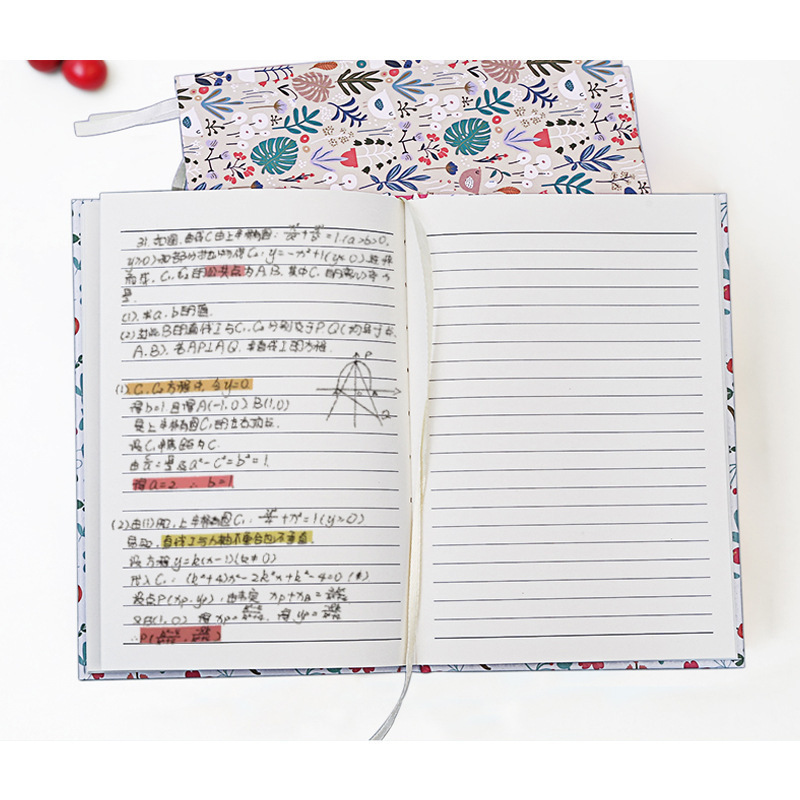 31. 如图. 曲线C由上半椭圆: =1(a>b>0,
y≥0)和部分抛物线C₂: y=-x²+1(y≤0)连接
而成. C₁, C₂的公共点为A.B. 其中C₁的离心率为
(1). 求a.b的值.
(2) 过点B的直线l与C₁, C₂分别交于P.Q(均异于点
A.B). 若AP⊥AQ. 求直线l的方程.
P
Q
(1) C₁, C₂方程中, 令y=0.
得b=1. 且得A(-1,0). B(1,0)
是上半椭圆C₁的左右顶点.
设C₁半焦距为C.
由 及a²-c²=b²=1.
得a=2 ∴ b=1
(2) 由(1)知, 上半椭圆C₁: +x²=1(y≥0)
易知, 直线l与x轴不重合也不垂直.
设方程y=k(x-1)(k≠0)
代入C₁: (k²+4)x²-2k²x+k²-4=0 (*)
设点P(xp, yp),
又B(1,0) 得xp= 得yp=
∴P(